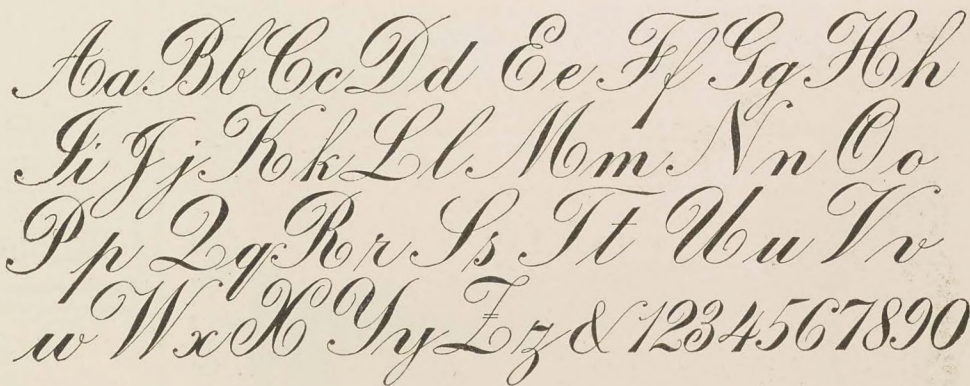 Aa Bb Cc Dd Ee Ff Gg Hh
Ii Jj Kk Ll Mm Nn Oo
Pp Qq Rr Ss Tt Uu Vv
w W x X Y y Z z & 1234567890